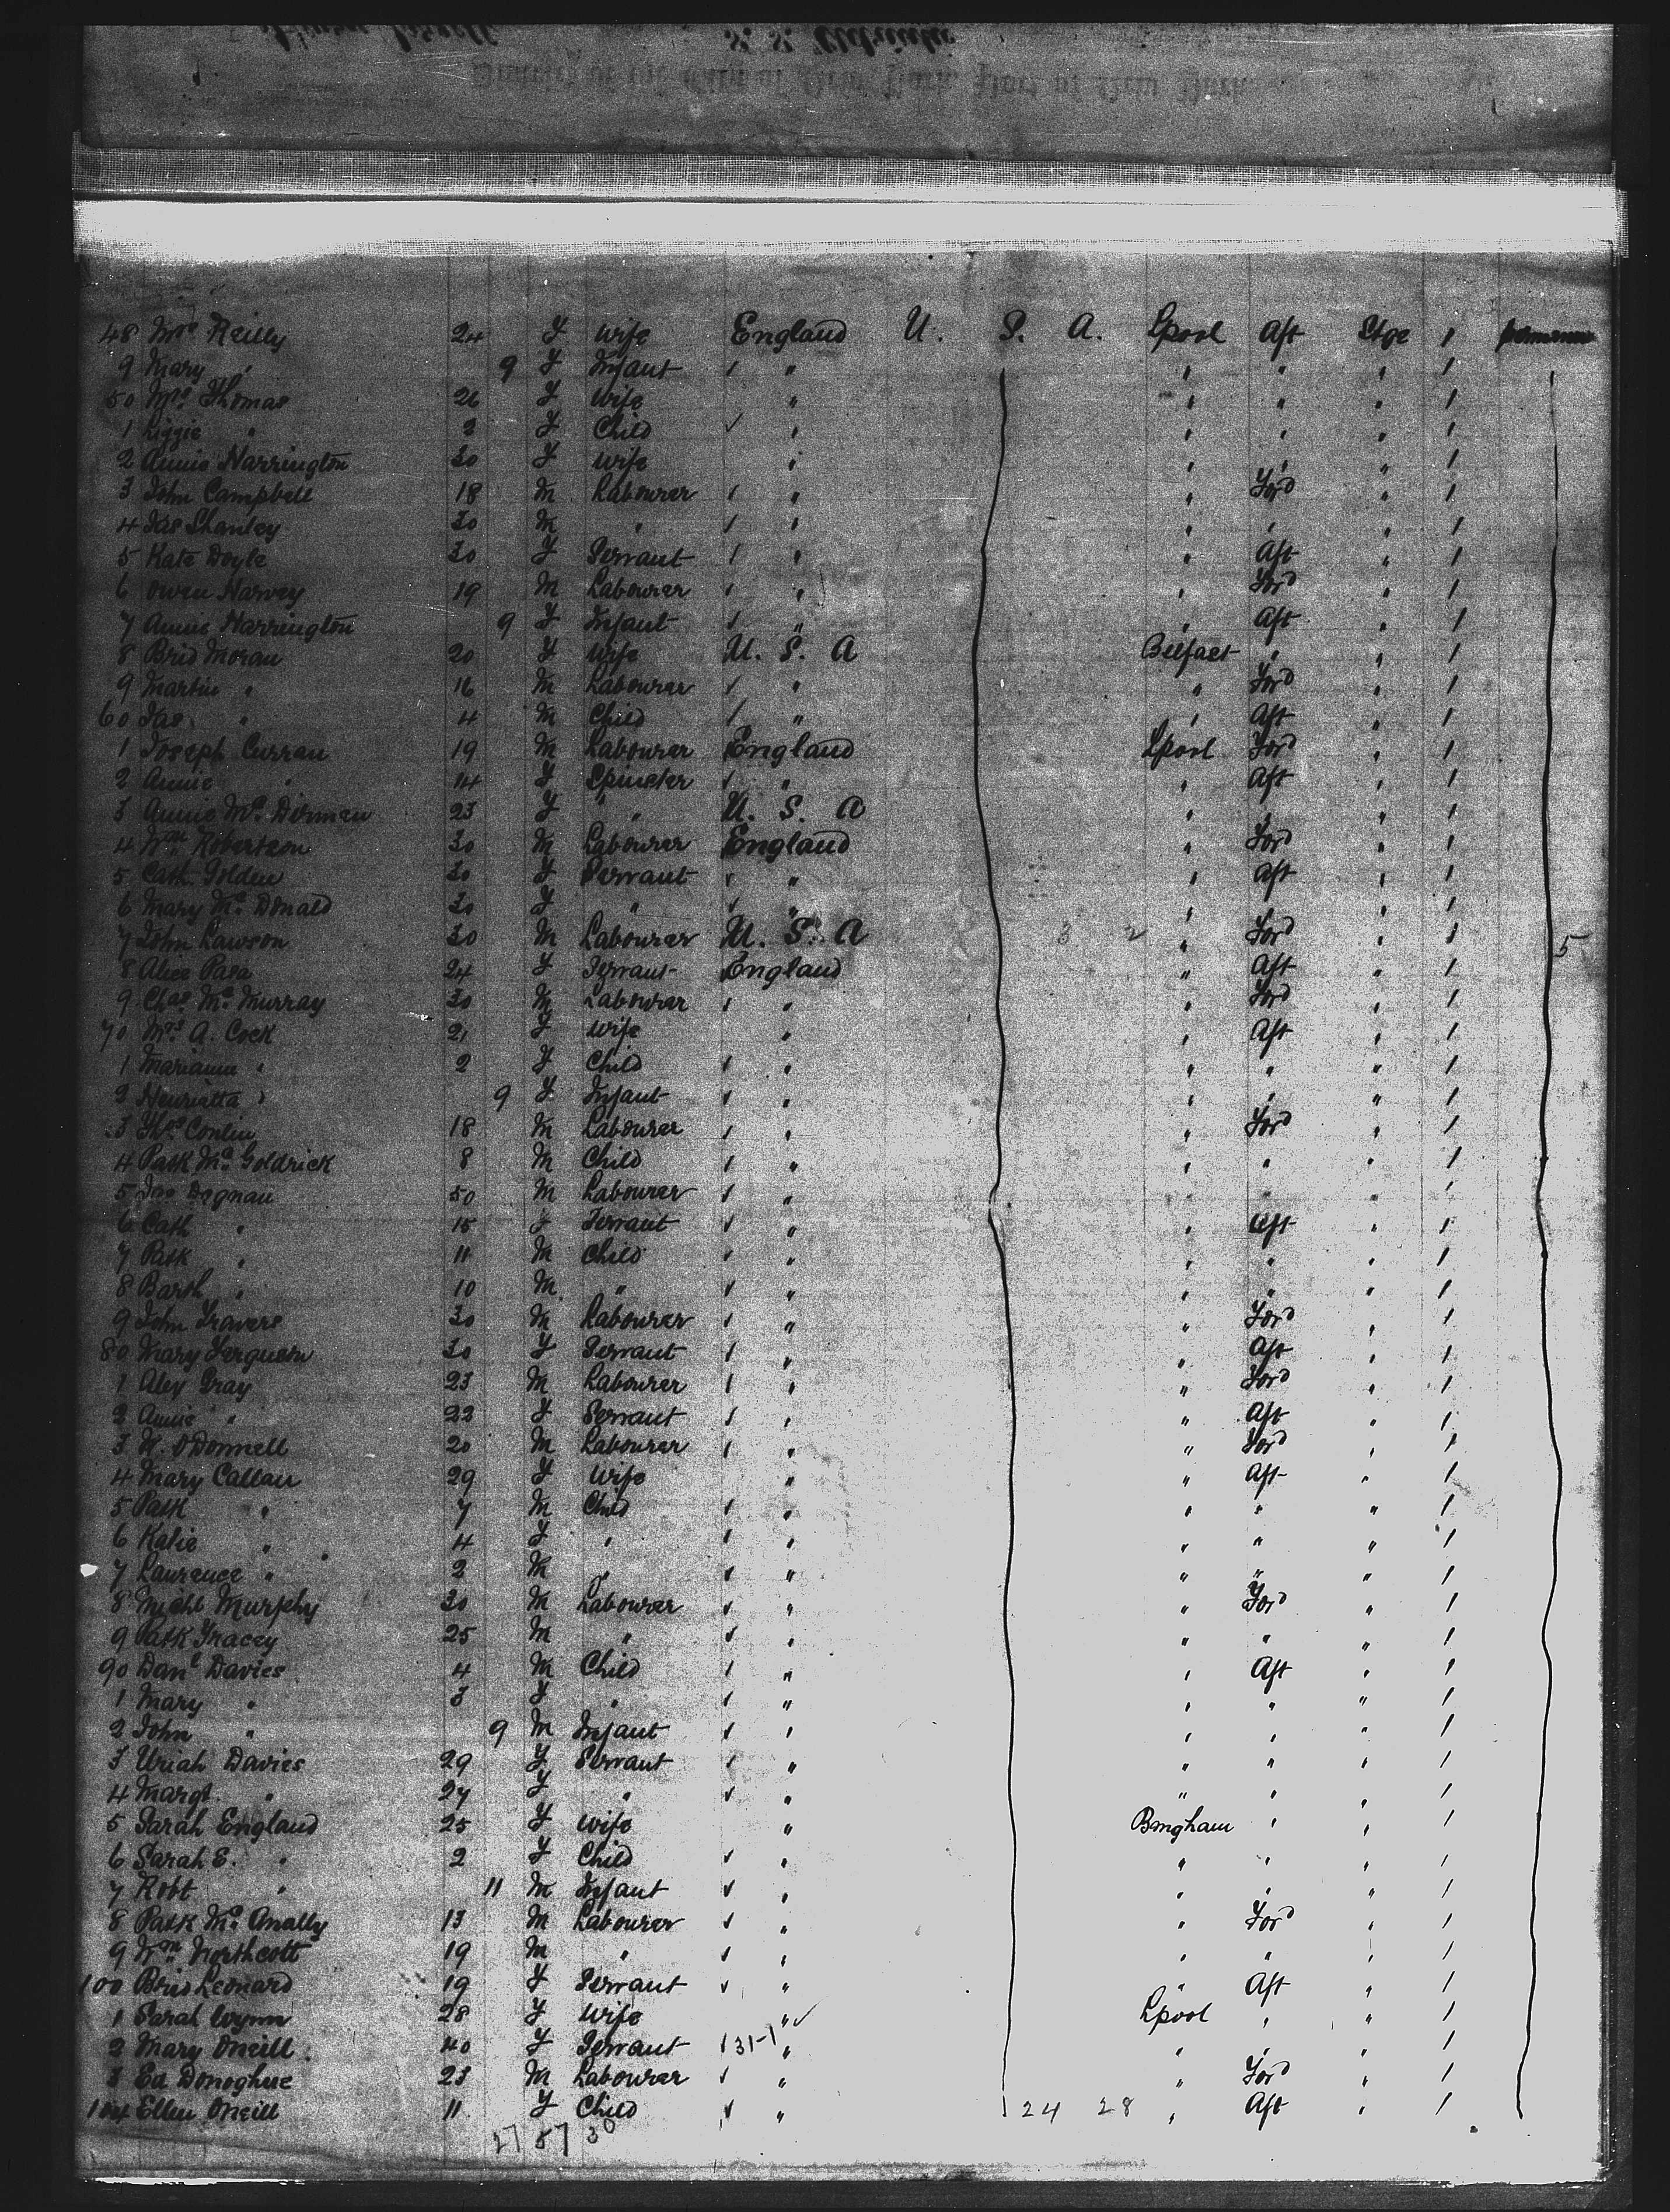 48 Mrs Reilly 24 F Wife England U. S. A. Lpool Aft Stge 1
9 Mary " 9 F Infant " " " " 1
50 Mrs Thomas 26 F Wife " " " " 1
1 Lizzie " 2 F Child " " " " 1
2 Annie Harrington 30 F Wife " " " " 1
3 John Campbell 18 M Labourer " " Ford " 1
4 Jas Shanley 30 M " " " " " 1
5 Kate Doyle 30 F Servant " " Aft " 1
6 Owen Harvey 19 M Labourer " " Ford " 1
7 Annie Harrington 9 F Infant " " Aft " 1
8 Brid Moran 20 F Wife U. S. A Belfast " " 1
9 Martin " 16 M Labourer " " Ford " 1
60 Jas " 4 M Child " " Aft " 1
1 Joseph Curran 19 M Labourer England Lpool Ford " 1
2 Annie " 14 F Spinster " " Aft " 1
3 Annie Mc Dirman 23 F " U. S. A " " " 1
4 Wm Robertson 30 M Labourer England " Ford " 1
5 Cath Golden 30 F Servant " " Aft " 1
6 Mary Mc Donald 30 F " " " " " 1
7 John Lawson 30 M Labourer U. S. A 3 2 " Ford " 1 5
8 Alice 24 F Servant England " Aft " 1
9 Chas Mc Murray 30 M Labourer " " Ford " 1
70 Mrs A. Cock 21 F Wife " " Aft " 1
1 " 2 F Child " " " " 1
2 Henrietta " 9 F Infant " " " " 1
3 Thos Conlin 18 M Labourer " " Ford " 1
4 Patk Mc Goldrick 8 M Child " " " " 1
5 Jas Degnan 50 M Labourer " " " " 1
6 Cath " 15 F Servant " " Aft " 1
7 Patk " 11 M Child " " " " 1
8 Barth " 10 M " " " " " 1
9 John Travers 30 M Labourer " " Ford " 1
80 Mary Ferguson 30 F Servant " " Aft " 1
1 Alex Gray 23 M Labourer " " Ford " 1
2 Annie " 22 F Servant " " Aft " 1
3 M. O'Donnell 20 M Labourer " " Ford " 1
4 Mary Callan 29 F Wife " " Aft " 1
5 Patk " 7 M Child " " " " 1
6 Katie " 4 F " " " " " 1
7 Laurence " 2 M " " " " " 1
8 Michl Murphy 30 M Labourer " " Ford " 1
9 Patk Tracey 25 M " " " " " 1
90 Danl Davies 4 M Child " " Aft " 1
1 Mary " 3 F " " " " " 1
2 John " 9 M Infant " " " " 1
3 Uriah Davies 29 F Servant " " " " 1
4 Margt. " 27 F " " " " " 1
5 Sarah England 25 F Wife " Bmgham " " 1
6 Sarah E. " 2 F Child " " " " 1
7 Robt " 11 M Infant " " " " 1
8 Patk Mc Anally 13 M Labourer " " Ford " 1
9 Wm Northcott 19 M " " " " " 1
100 Brid Leonard 19 F Servant " " Aft " 1
1 Sarah Wynn 28 F Wife " Lpool " " 1
2 Mary Oneill 40 F Servant 31-1 " " " " 1
3 Ed Donoghue 23 M Labourer " " Ford " 1
104 Ellen Oneill 11 F Child " 24 28 " Aft " 1
27 57 30